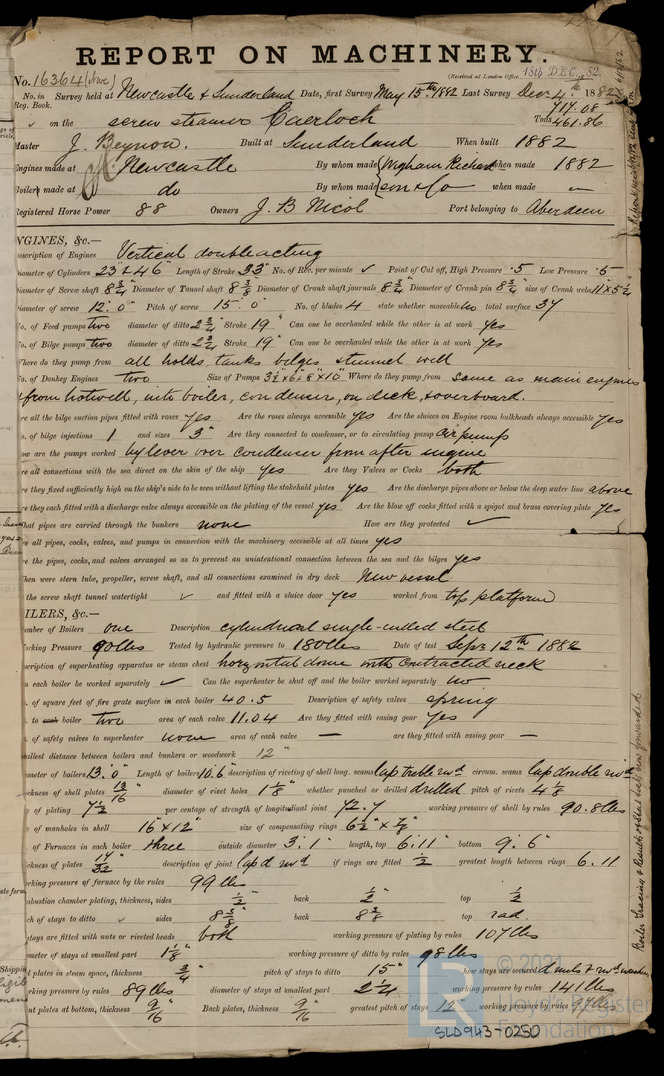 REPORT ON MACHINERY.
No. 16364 (Received at London Office 18th DEC. 82.
No. in Survey held at Newcastle & Sunderland Date, first Survey May 15th 1882 Last Survey Dec 4th 1882
Reg. Book. 717.08
on the screw steamer Caerloch Tons 461.86
Master J. Beynon. Built at Sunderland When built 1882
Engines made at Newcastle By whom made Wigham Richardson when made 1882
Boilers made at do By whom made son & Co when made —
Registered Horse Power 88 Owners J. B Nicol Port belonging to Aberdeen
NGINES, &c.—
escription of Engines Vertical double acting
iameter of Cylinders 23" & 46" Length of Stroke 33" No. of Rev. per minute ✓ Point of Cut off, High Pressure .5 Low Pressure .5
iameter of Screw shaft 8 3/4 Diameter of Tunnel shaft 8 3/8 Diameter of Crank shaft journals 8 3/4 Diameter of Crank pin 8 3/4 size of Crank webs 11 x 5 1/2
iameter of screw 12'. 0" Pitch of screw 15'. 0" No. of blades 4 state whether moveable no total surface 34
No. of Feed pumps two diameter of ditto 2 3/4" Stroke 19" Can one be overhauled while the other is at work yes
No. of Bilge pumps two diameter of ditto 2 3/4 Stroke 19" Can one be overhauled while the other is at work yes
Where do they pump from all holds, tanks bilges & tunnel well
No. of Donkey Engines two Size of Pumps Where do they pump from same as main engines
& from hotwell, into boiler, condenser, on deck, & overboard.
re all the bilge suction pipes fitted with roses yes Are the roses always accessible yes Are the sluices on Engine room bulkheads always accessible yes
o. of bilge injections 1 and sizes 3" Are they connected to condenser, or to circulating pump air pump
ow are the pumps worked by lever over condenser from after engine
re all connections with the sea direct on the skin of the ship yes Are they Valves or Cocks both
re they fixed sufficiently high on the ship's side to be seen without lifting the stokehold plates yes Are the discharge pipes above or below the deep water line above
re they each fitted with a discharge valve always accessible on the plating of the vessel yes Are the blow off cocks fitted with a spigot and brass covering plate yes
hat pipes are carried through the bunkers none How are they protected ✓
re all pipes, cocks, valves, and pumps in connection with the machinery accessible at all times yes
re the pipes, cocks, and valves arranged so as to prevent an unintentional connection between the sea and the bilges yes
hen were stern tube, propeller, screw shaft, and all connections examined in dry dock New vessel
the screw shaft tunnel watertight ✓ and fitted with a sluice door yes worked from top platform
ILERS, &c.—
umber of Boilers one Description cylindrical single-ended steel
orking Pressure 90 lbs Tested by hydraulic pressure to 180 lbs Date of test Sept 12th 1882
escription of superheating apparatus or steam chest horizontal dome with contracted neck
n each boiler be worked separately ✓ Can the superheater be shut off and the boiler worked separately no
. of square feet of fire grate surface in each boiler 40.5 Description of safety valves spring
. to each boiler two area of each valve 11.04 Are they fitted with easing gear yes
. of safety valves to superheater none area of each valve — are they fitted with easing gear —
allest distance between boilers and bunkers or woodwork 12"
ameter of boilers 13.0 Length of boilers 10.6" description of riveting of shell long. seams lap treble rivd circum. seams lap double rivd
ckness of shell plates 13/16 diameter of rivet holes 1 1/8" whether punched or drilled drilled pitch of rivets 4 1/8
p of plating 7 1/2 per centage of strength of longitudinal joint 72.7 working pressure of shell by rules 90.8 lbs
e of manholes in shell 16" x 12" size of compensating rings 6 1/2" x 7/8"
. of Furnaces in each boiler three outside diameter 3'.1" length, top 6'.11" bottom 9'. 6"
ckness of plates 17/32 description of joint lap d rivd if rings are fitted 1/2 greatest length between rings 6.11
orking pressure of furnace by the rules 99 lbs
ombustion chamber plating, thickness, sides 1/2" back 1/2" top 1/2
ch of stays to ditto sides 8 3/8 back 8 3/8 top rad.
stays are fitted with nuts or riveted heads both working pressure of plating by rules 107 lbs
ameter of stays at smallest part 1 1/8 working pressure of ditto by rules 98 lbs
d plates in steam space, thickness 3/4" pitch of stays to ditto 15" how stays are secured d nuts & rivd washers
orking pressure by rules 89 lbs diameter of stays at smallest part 2 1/4 working pressure by rules 141 lbs
nt plates at bottom, thickness 9/16 Back plates, thickness 9/16 greatest pitch of stays 12 working pressure by rules 97 lbs
© 2021
Lloyd's Register
Foundation
SLD943-0250